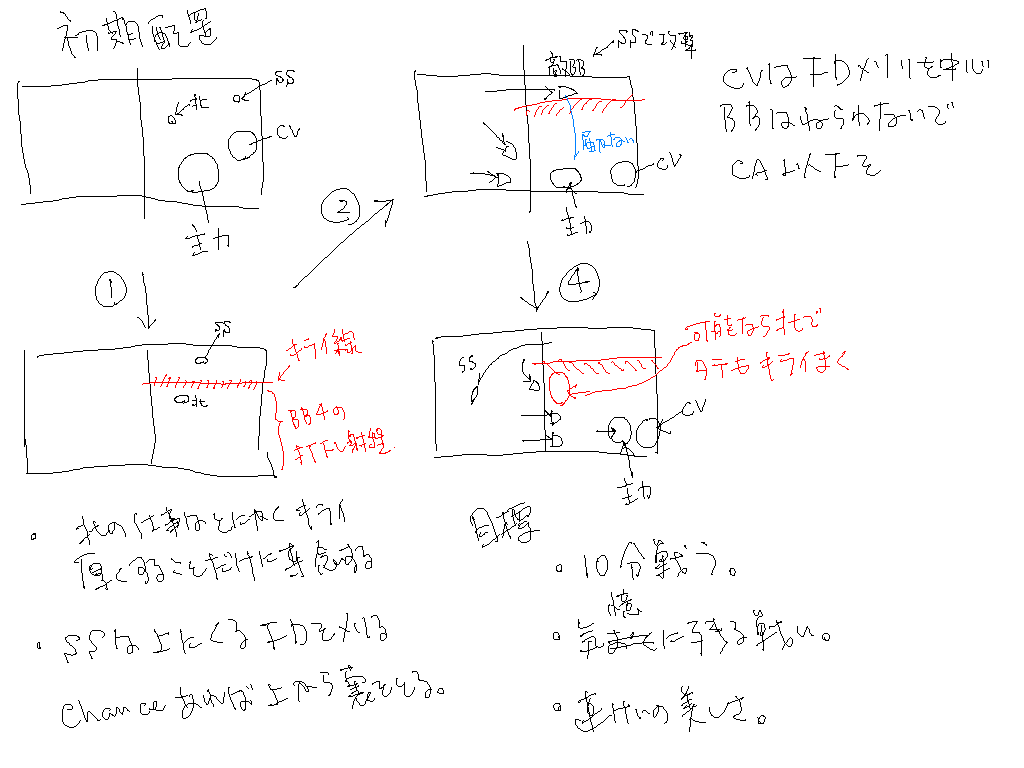 初期配置
SS
北
CV
主力
①
SS
キライ線
北
BB4の
射程
②
SSで攻撃
敵BB
届かない
CV
主力
CVは下Dメリリを中心
BBはねらわないで
CA以下を
④
SS
可能なら北で
タテもキライまく
CV
主力
・北の仕事はとにかくキライ
厚くすることだけに専念する
・SSは上にくる下Dをメリる
chanceあれば上から裏をとる。
目標
・10分戦う。
・記憶に残る戦い。
・連けいの美しさ。